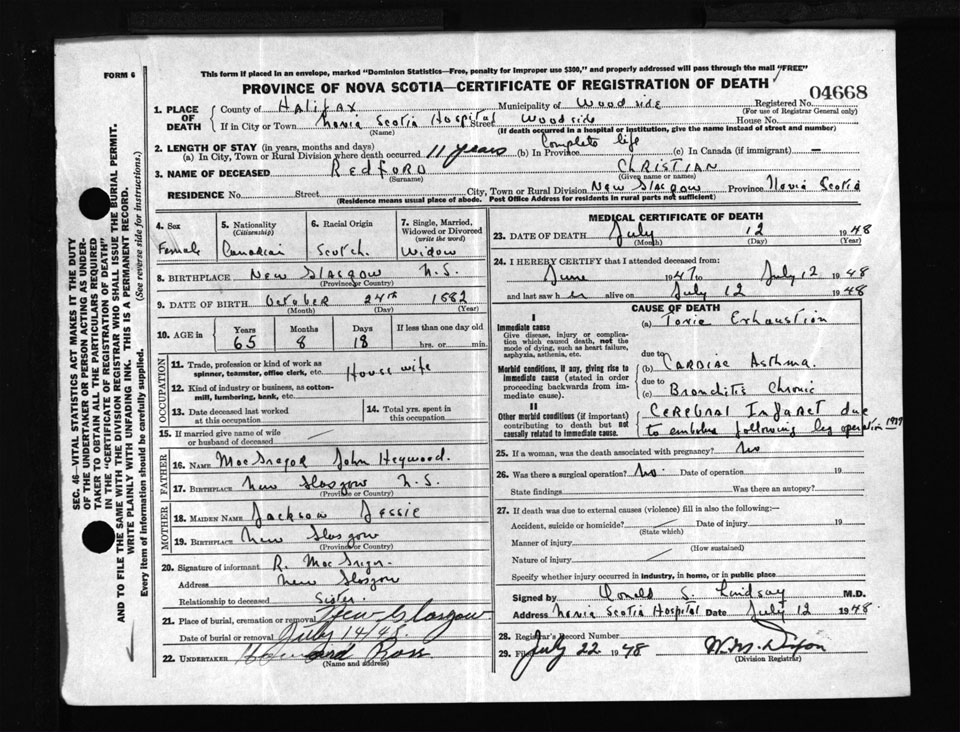 FORM 6
This form if placed in an envelope, marked "Dominion Statistics—Free, penalty for improper use $300," and properly addressed will pass through the mail "FREE"
PROVINCE OF NOVA SCOTIA—CERTIFICATE OF REGISTRATION OF DEATH
04668
1. PLACE OF DEATH
County of Halifax Municipality of Woodside Registered No.
(For use of Registrar General only)
If in City or Town Novia Scotia Hospital Street Woodside House No.
(Name) (If death occurred in a hospital or institution, give the name instead of street and number)
2. LENGTH OF STAY (in years, months and days)
(a) In City, Town or Rural Division where death occurred 11 years (b) In Province Complete life (c) In Canada (if immigrant) —
3. NAME OF DECEASED REDFORD CHRISTIAN
(Surname) (Given name or names)
RESIDENCE No. Street City, Town or Rural Division New Glasgow Province Novia Scotia
(Residence means usual place of abode. Post Office Address for residents in rural parts not sufficient)
4. Sex
Female
5. Nationality
(Citizenship)
Canadian
6. Racial Origin
Scotch.
7. Single, Married, Widowed or Divorced
(write the word)
Widow
8. BIRTHPLACE New Glasgow N.S.
(Province or Country)
9. DATE OF BIRTH October 24th 1882
(Month) (Day) (Year)
10. AGE in
Years Months Days If less than one day old
65 8 18 hrs. or min.
OCCUPATION
11. Trade, profession or kind of work as spinner, teamster, office clerk, etc. House wife
12. Kind of industry or business, as cotton-mill, lumbering, bank, etc.
13. Date deceased last worked at this occupation
14. Total yrs. spent in this occupation
15. If married give name of wife or husband of deceased
FATHER
16. NAME MacGregor John Heywood.
17. BIRTHPLACE New Glasgow N.S.
(Province or Country)
MOTHER
18. MAIDEN NAME Jackson Jessie
19. BIRTHPLACE New Glasgow
(Province or Country)
20. Signature of informant R. MacGregor
Address New Glasgow
Relationship to deceased Sister.
21. Place of burial, cremation or removal New Glasgow
Date of burial or removal July 14/48
22. UNDERTAKER Ross
(Name and address)
MEDICAL CERTIFICATE OF DEATH
23. DATE OF DEATH July 12 1948
(Month) (Day) (Year)
24. I HEREBY CERTIFY that I attended deceased from:
June 1947 to July 12 1948
and last saw her alive on July 12 1948
CAUSE OF DEATH
I
Immediate cause
Give disease, injury or complication which caused death, not the mode of dying, such as heart failure, asphyxia, asthenia, etc.
(a) Toxic Exhaustion
due to
Morbid conditions, if any, giving rise to immediate cause (stated in order proceeding backwards from immediate cause).
(b) Cardiac Asthma.
due to
(c) Bronchitis Chronic
II
Other morbid conditions (if important) contributing to death but not causally related to immediate cause.
Cerebral Infarct due
to embolus following leg operation
25. If a woman, was the death associated with pregnancy? No
26. Was there a surgical operation? No. Date of operation 19
State findings Was there an autopsy?
27. If death was due to external causes (violence) fill in also the following:—
Accident, suicide or homicide? Date of injury 19
(State which)
Manner of injury
(How sustained)
Nature of injury
Specify whether injury occurred in industry, in home, or in public place
Signed by Donald S. Lindsay M.D.
Address Novia Scotia Hospital Date July 12 1948.
28. Registrar's Record Number
29. Filed July 22 1948 W.M. Dixon
(Division Registrar)
SEC. 46—VITAL STATISTICS ACT MAKES IT THE DUTY OF THE UNDERTAKER OR PERSON ACTING AS UNDERTAKER TO OBTAIN ALL THE PARTICULARS REQUIRED IN THE "CERTIFICATE OF REGISTRATION OF DEATH" AND TO FILE THE SAME WITH THE DIVISION REGISTRAR WHO SHALL ISSUE THE BURIAL PERMIT.
WRITE PLAINLY WITH UNFADING INK. THIS IS A PERMANENT RECORD.
Every item of information should be carefully supplied. (See reverse side for instructions.)